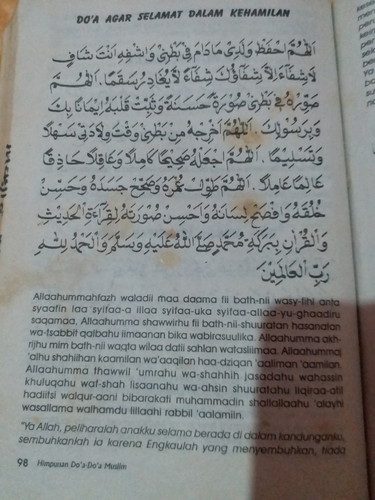 DO'A AGAR SELAMAT DALAM KEHAMILAN
اَللّٰهُمَّ احْفَظْ وَلَدِيْ مَادَامَ فِيْ بَطْنِيْ وَاشْفِهِ اَنْتَ شَافٍ
لَا شِفَاءَ اِلَّا شِفَاؤُكَ شِفَاءً لَا يُغَادِرُ سَقَمًا. اَللّٰهُمَّ
صَوِّرْهُ فِيْ بَطْنِيْ صُوْرَةً حَسَنَةً وَثَبِّتْ قَلْبَهُ اِيْمَانًا بِكَ
وَبِرَسُوْلِكَ. اَللّٰهُمَّ اَخْرِجْهُ مِنْ بَطْنِيْ وَقْتَ وِلَادَتِيْ سَهْلًا
وَتَسْلِيْمًا. اَللّٰهُمَّ اجْعَلْهُ صَحِيْحًا كَامِلًا وَعَاقِلًا حَاذِقًا
عَالِمًا عَامِلًا. اَللّٰهُمَّ طَوِّلْ عُمْرَهُ وَصَحِّحْ جَسَدَهُ وَحَسِّنْ
خُلُقَهُ وَافْصَحْ لِسَانَهُ وَاَحْسِنْ صُوْرَتَهُ لِقِرَاءَةِ الْحَدِيْثِ
وَالْقُرْاٰنِ بِبَرَكَةِ مُحَمَّدٍ صَلَّى اللهُ عَلَيْهِ وَسَلَّمَ وَالْحَمْدُ لِلّٰهِ
رَبِّ الْعَالَمِيْنَ
Allaahummahfazh waladii maa daama fii bath-nii wasy-fihi anta
syaafin laa syifaa-a illaa syifaa-uka syifaa-allaa-yu-ghaadiru
saqamaa. Allaahumma shawwirhu fii bath-nii-shuuratan hasanatan
wa-tsabbit qalbahu iimaanan bika wabirasuulika. Allaahumma akh-
rijhu mim bath-nii waqta wilaa datii sahlan watasliimaa. Allaahummaj
'alhu shahiihan kaamilan wa'aaqilan haa-dziqan 'aaliman 'aamilan.
Allaahumma thawwil 'umrahu wa-shahhih jasadahu wahassin
khuluqahu waf-shah lisaanahu wa-ahsin shuuratahu liqiraa-atil
hadiitsi walqur-aani bibarakati muhammadin shallallaahu 'alayhi
wasallama walhamdu lillaahi rabbil 'aalamiin.
"Ya Allah, peliharalah anakku selama berada di dalam kandunganku,
sembuhkanlah ia karena Engkaulah yang menyembuhkan, tiada
98 Himpunan Do'a-Do'a Muslim